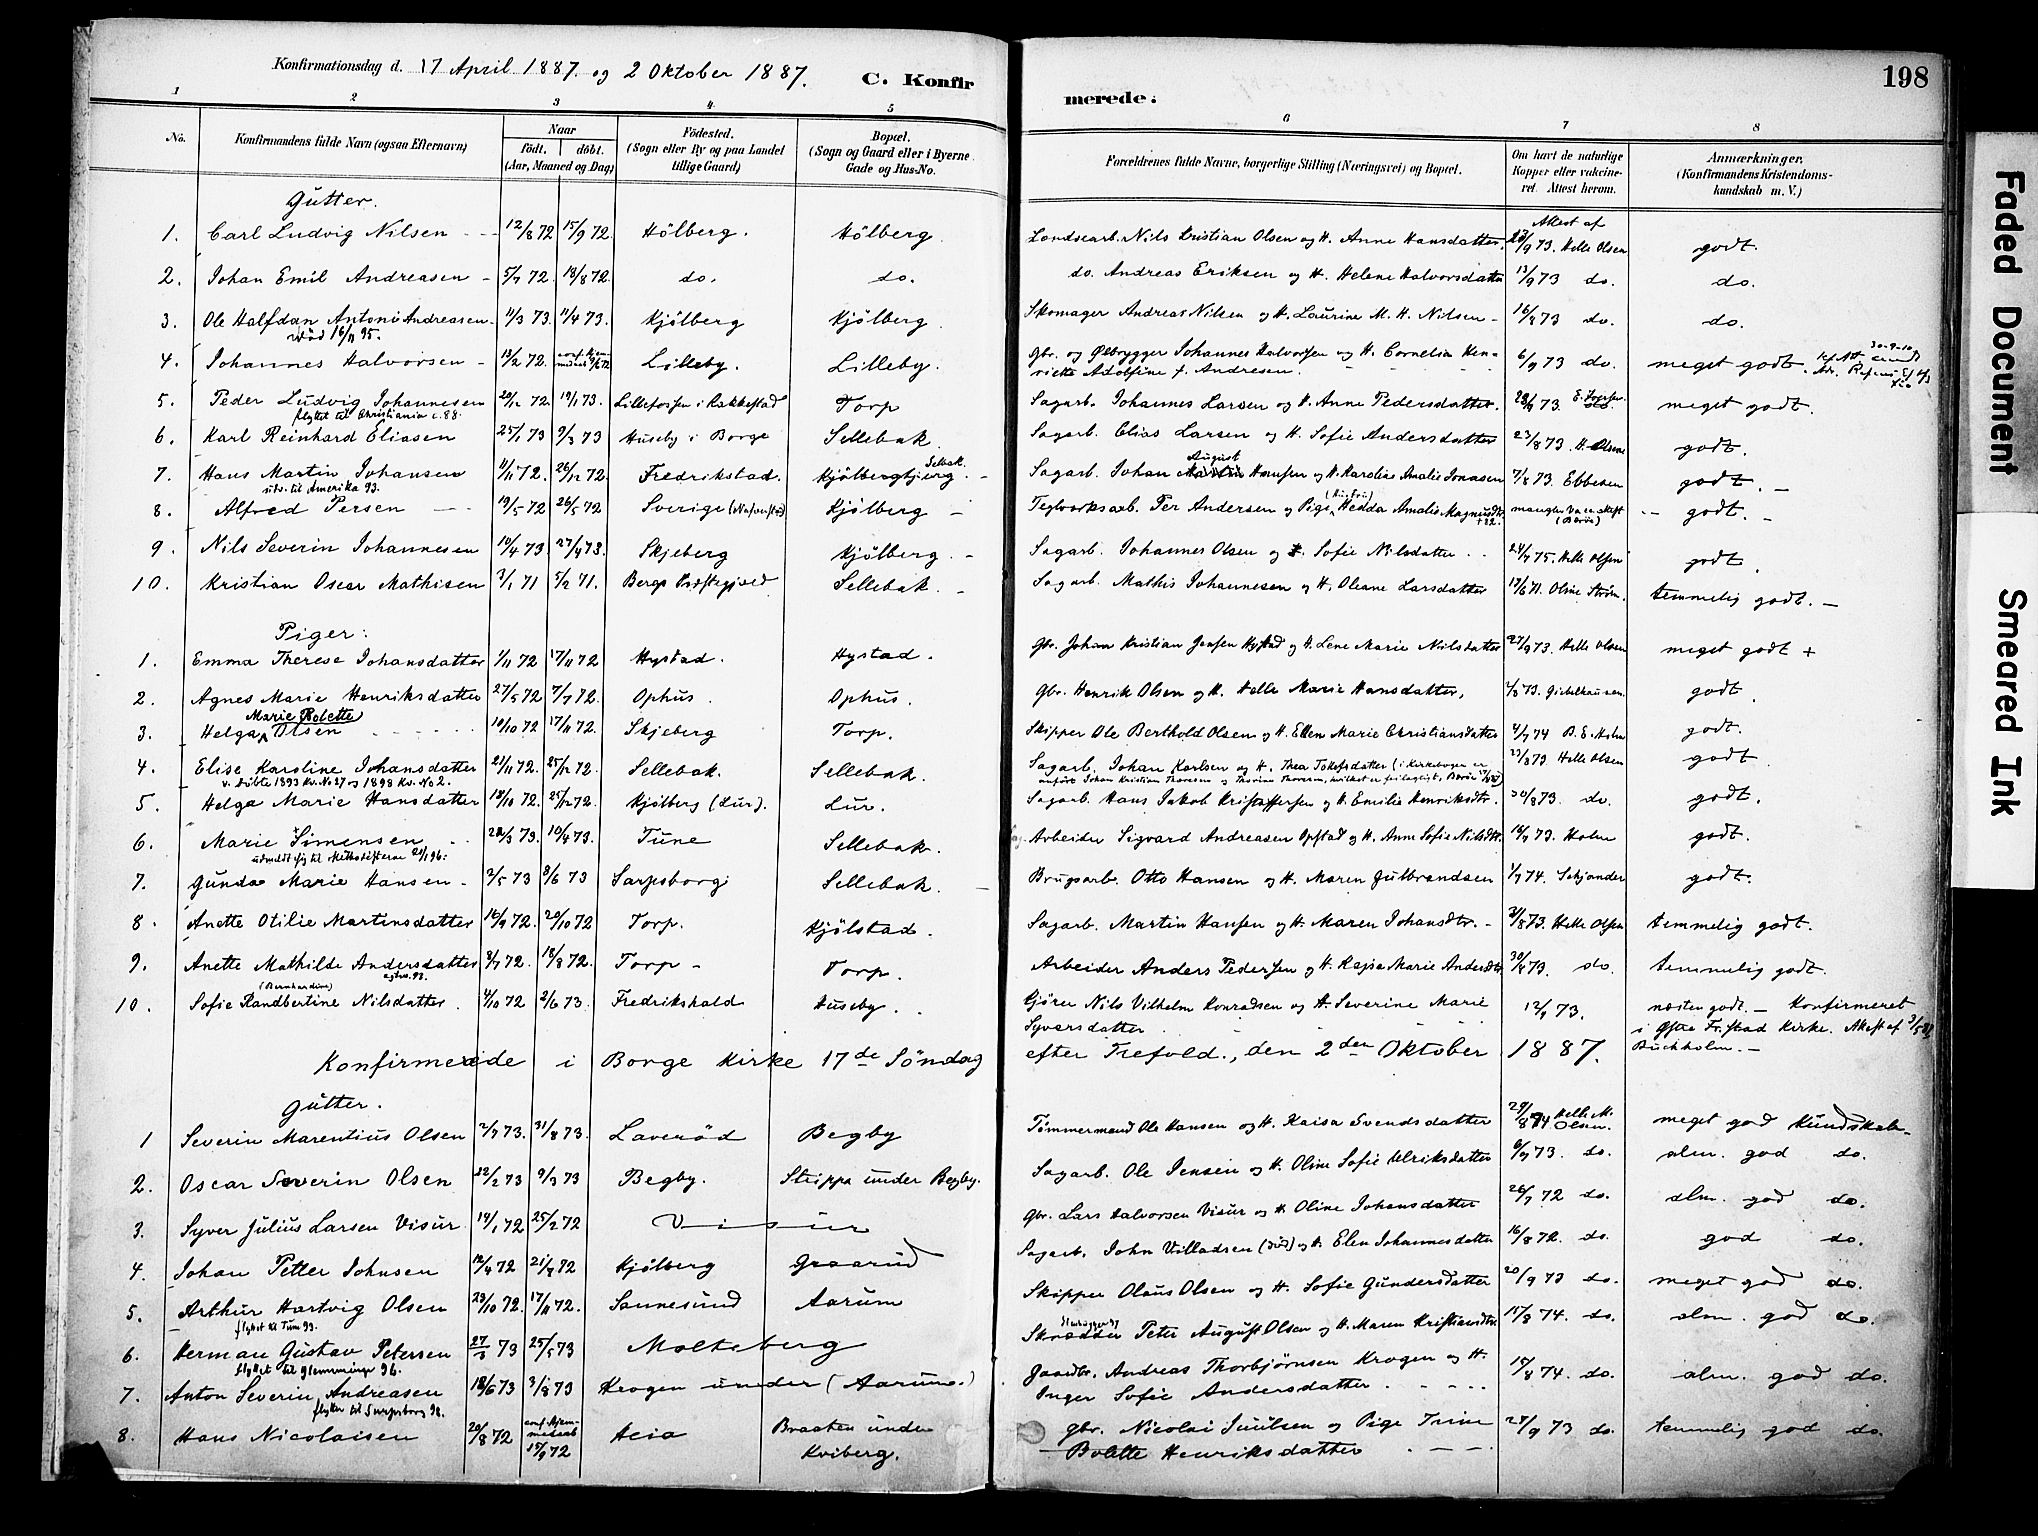 Konfirmationsdag d. 17 April 1887. og 2 Oktober 1887. C. Konfir merede. 198
1 2 3 4 5 6 7 8
No. Konfirmandens fulde Navn (ogsaa Efternavn) Naar födt. döbt. (Aar, Maaned og Dag) Födested. (Sogn eller By og paa Landet tillige Gaard) Bopæl. (Sogn og Gaard eller i Byerne Gade og Hus-No. Forældrenes fulde Navne, borgerlige Stilling (Næringsvei) og Bopæl. Om havt de naturlige Kopper eller vakcineret. Attest herom. Anmærkninger. (Konfirmandens Kristendomskundskab m. V.)
Gutter.
1. Carl Ludvig Nilsen 12/8 72 15/9 72. Hölberg. Hölberg. Landsearb. Nils Kristian Olsen og H. Anne Hansdatter. Attest af /9 73. Helle Olsen godt.
2. Johan Emil Andreasen 5/7 72. 18/8 72. do. do. do. Andreas Eriksen og H. Helene Halvorsdatter 13/9 73 do. do.
3. Ole Halfdan Antoni Andreasen 11/3 73. 11/4 73. Kjölberg Kjölberg. Skomager Andreas Nilsen og H. Laurine M. H. Nilsen 16/8 73 do. do.
död 16/11 95.
4. Johannes Halvorsen 13/2 72. Lilleby. Lilleby. Gbr. og Ølbrygger Johannes Halvorsen og H. Cornelia Henriette Adolfine f. Andresen. 6/9 73 do. meget godt
5. Peder Ludvig Johannesen 20/12 72. 19/1 73. Lillefossen i Rakkestad Torp Sagarb. Johannes Larsen og H. Anne Pedersdatter. 28/9 73. meget godt.
flyttet til Christiania c. 88.
6. Karl Reinhard Eliasen 25/1 73 9/3 73 Huseby i Borge Sellebak. Sagarb. Elias Larsen og H. Sofie Andersdatter 23/8 73. H. Olsen godt.
7. Hans Martin Johansen 11/11 72. 26/12 72. Fredrikstad. Kjölbergbjerg. Selbak. Sagarb. Johan August Hansen og H. Karoline Amalie Jonassen 7/8 73. Ebbesen godt.
udv. til Amerika 93.
8. Alfred Persen 19/5 72 26/5 72 Sverige Kjölberg Teglverksarb. Per Andersen og Pige Hedda Amalie Magnusdtr. mangler Vacc. attest (Borge) godt.
9. Nils Severin Johannesen 10/4 73. 27/4 73. Skjeberg Kjölberg. Sagarb. Johannes Olsen og H. Sofie Nilsdatter 24/7 75. Helle Olsen godt.
10. Kristian Oscar Mathisen 3/1 71 5/2 71. Berge Præstegjæld Sellebak. Sagarb. Mathis Johannesen og H. Oleane Larsdatter 17/6 71. Oline Ström. temmelig godt.
Piger:
1. Emma Therese Johansdatter 1/11 72 17/11 72 Hystad. Hystad. Gbr. Johan Kristian Jensen Hystad og H. Lene Marie Nilsdatter 27/9 73. Helle Olsen meget godt +
2. Agnes Marie Henriksdatter 27/5 72 7/7 72. Ophus. Ophus. Gbr. Henrik Olsen og H. Helle Marie Hansdatter, godt.
Marie Bolette
3. Helga Olsen 10/10 72 17/11 72. Skjeberg Torp. Skipper Ole Berthold Olsen og H. Ellen Marie Christiansdatter 4/7 74 B. E. Holm godt.
4. Elise Karoline Johansdatter 21/11 72. 25/12 72. Sellebak. Sellebak. Sagarb. Johan Karlsen og H. Thea Tollefsdatter (i Kirkebogen er 23/8 73 Helle Olsen godt.
v. döbte 1893 Kv. No 27 og 1898 Kv. No 2. anfört Johan Kristian Thoresen og Thorine Thoresen, hvilket er feilagtigt, Borge
5. Helga Marie Hansdatter 18/10 72. 25/12 72. Kjölberg (Lur). Lur. Sagarb. Hans Jakob Kristoffersen og H. Emilie Henriksdtr. 30/8 73. do. godt.
6. Marie Simensen 22/3 73. 10/4 73. Tune Sellebak. Arbeider Sigvard Andreasen Opstad og H. Anne Sofie Nilsdtr. 14/9 73. Holm godt.
udmeldt sig til Methodisterne 21/1 96.
7. Gunda Marie Hansen 2/5 73 8/6 73 Sarpsborg Sellebak. Brugsarb. Otto Hansen og H. Maren Gulbrandsen 1/7 74. Schjander godt.
8. Anette Otilie Martinsdatter 16/9 72. 20/10 72 Torp. Kjölstad. Sagarb. Martin Hansen og H. Maren Johansdtr. 3/8 73. Helle Olsen temmelig godt.
9. Anette Mathilde Andersdatter 3/7 72. 18/8 72. Torp Torp. Arbeider Anders Pedersen og H. Kajsa Marie Andersdtr 30/8 73. do. temmelig godt.
(Bernhardine)
10. Sofie Randbertine Nilsdatter 4/10 72 2/6 73. Fredrikshald Huseby. Gjörer Nils Vilhelm Konradsen og H. Severine Marie Syversdatter 12/9 73. næsten godt. Konfirmeret i Østre Fr.stad Kirke. Attest af Buchholm.
Konfirmerede i Borge Kirke 17de Söndag efter Trefold., den 2den Oktober 1887.
Gutter.
1 Severin Marentius Olsen 2/7 73. 31/8 73. Laveröd Begby Tömmermand Ole Hansen og H. Kaisa Svendsdatter 29/8 74 Helle M. Olsen. meget god Kundskab
2. Oscar Severin Olsen 22/2 73 9/3 73 Begby. Strippa under Begby. Sagarb. Ole Jensen og H. Oline Sofie Ulriksdatter 6/9 73. do. alm. god do.
3. Syver Julius Larsen Visur 14/1 72 25/2 72 Visur Gbr. Lars Halvorsen Visur og H. Oline Johansdatter 26/7 72 do. alm. god do.
4. Johan Petter Johnsen 12/4 72 21/4 72 Kjölberg Graarud Sagarb. John Villadsen (död) og H. Elen Johannesdatter 16/8 72. do. god do.
5. Arthur Hartvig Olsen 23/10 72. 17/11 72. Sannesund Aarum Skipper Olaus Olsen og H. Sofie Gundersdatter 20/9 73 do. meget god do.
flyttet til Tune 93.
6. Herman Gustav Petersen 27/3 73 25/5 73 Molteberg Skrædder Peter August Olsen og H. Maren Kristiansdtr 15/8 74. do. alm. god do.
flyttet til Glemminge 96.
7. Anton Severin Andreasen 18/6 73 3/8 73 Krogen under (Aarum.) Gaardbr. Andreas Thorbjörnsen Krogen og H. Inger Sofie Andersdatter 15/8 74. do. alm. god do.
flyttet til Sarpsborg 98.
8. Hans Nicolaisen 20/8 72 conf. hjemmedöb 15/9 72 Heia Braaten under Kviberg. Gbr. Nicolai Juulsen og Pige Trine Bolette Henriksdatter 27/9 73 do. temmelig god do.
Faded Document
Smeared Ink